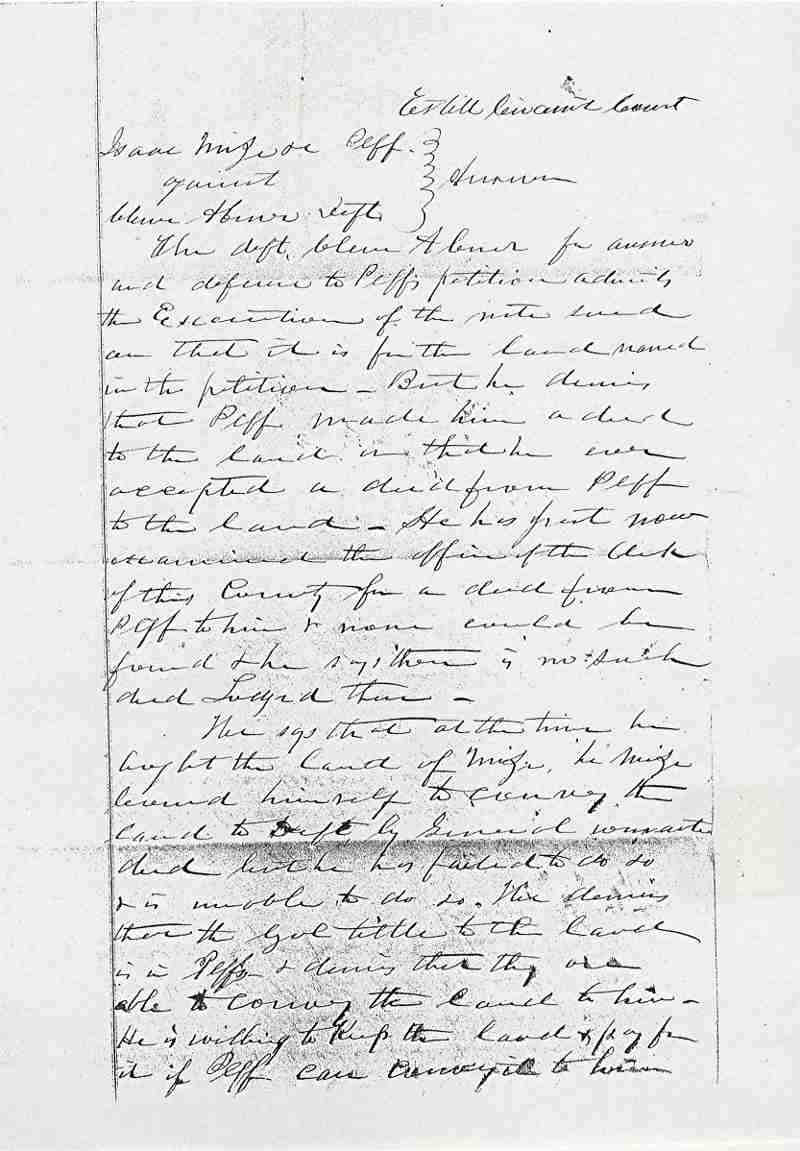 Estill Circuit Court
Isaac Mize &c Plff.
against Answer
Cleve Abner Deft
The deft. Cleve Abner for answer
and defense to Plffs petition admits
the Execution of the note sued
on that it is for the land named
in the petition – But he denies
that Plff made him a deed
to the land or that he ever
accepted a deed from Plff
to the land – He has just now
examined the office of the Clerk
of this County for a deed from
Plff to him & none could be
found & he says there is no such
deed Lodged there –
He sys that at the time he
bought the land of Mize, he Mize
bound himself to convey the
land to Deft by General warrantee
deed but he has failed to do so
& is unable to do so. He denies
that the legal tittle to the land
is in Plffs & denies that they are
able to convey the land to him –
He is willing to Keep the land & pay for
it if Plff can convey it to him